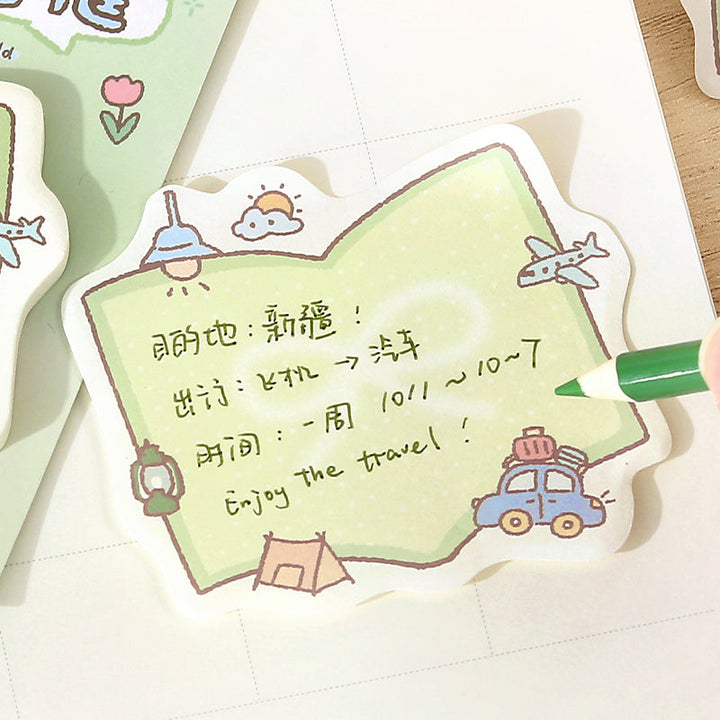 目的地：新疆！
出访：飞机 → 汽车
时间：一周 1011 ~ 10~7
Enjoy the travel！